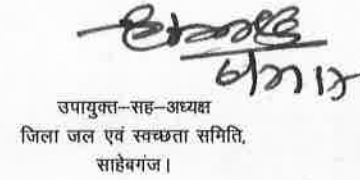 उपायुक्त–सह–अध्यक्ष
जिला जल एवं स्वच्छता समिति,
साहेबगंज।